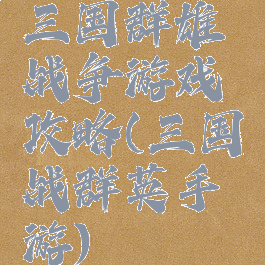 三国群雄
战争游戏
攻略(三国
战群英手
游)